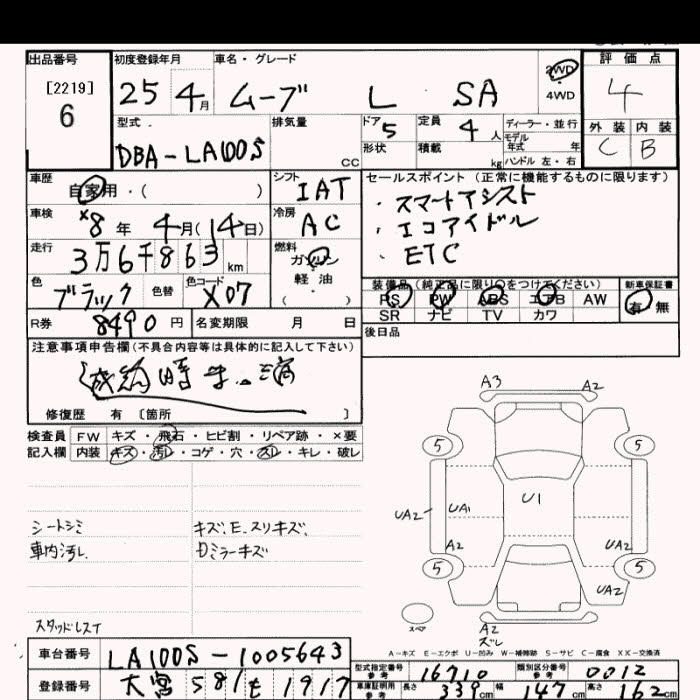 出品番号 初度登録年月 車名・グレード 評価点
[2219] 6 25 4月 ムーブ L SA 2WD 4WD 4
型式 排気量 ドア 5 定員 4人 ディーラー・並行 外装 内装
DBA-LA100S cc 形状 積載 kg モデル年式 年 C B
ハンドル 左・右
車歴 自家用・( ) シフト IAT セールスポイント (正常に機能するものに限ります)
車検 8年 4月(14日) 冷房 AC ・スマートアシスト
・エコアイドル
走行 3万6千863km 燃料 ガソリン ・ETC
軽油
( )
色 ブラック 色替 色コード X07 装備品 (純正品に限り○をつけてください) 新車保証書
PS PW ABS エアB AW 有・無
R券 8490円 名変期限 月 日 SR ナビ TV カワ
後日品
注意事項申告欄(不具合内容等は具体的に記入して下さい)
修復歴 有 〔箇所 〕
検査員 FW キズ・飛石・ヒビ割・リペア跡・×要
記入欄 内装 キズ・汚レ・コゲ・穴・スレ・キレ・破レ
A3 A2
5 5
U1
UA2 UA1
A2 UA2
5 5
UA2
A2
スレ
スペア
シートシミ キズ、E、スリキズ、
車内汚レ ミラーキズ
スタッドレス
A-キズ E-エクボ U-凹み W-補修跡 S-サビ C-腐食 XX-交換済
車台番号 LA100S-1005643 型式指定番号 参考 16710 類別区分番号 参考 0012
登録番号 大宮 581 1917 車庫証明用 参考 長さ 339cm 幅 147cm 高さ 162cm